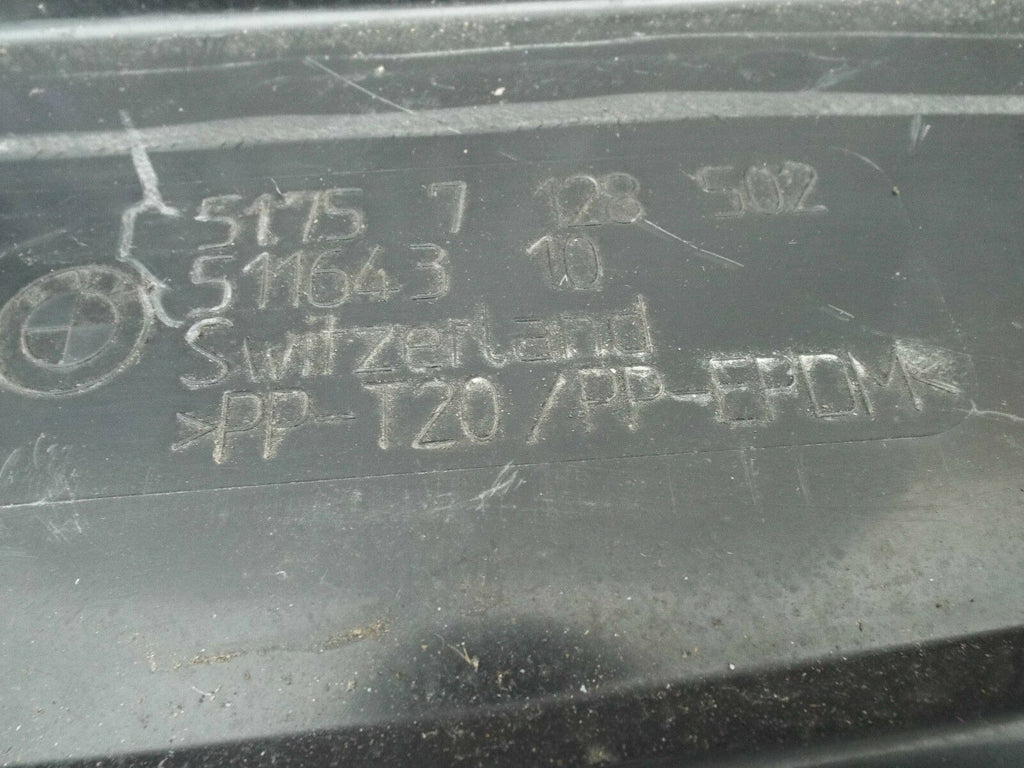 5175 7 128 502
511643 10
Switzerland
>PP-T20/PP-EPDM<